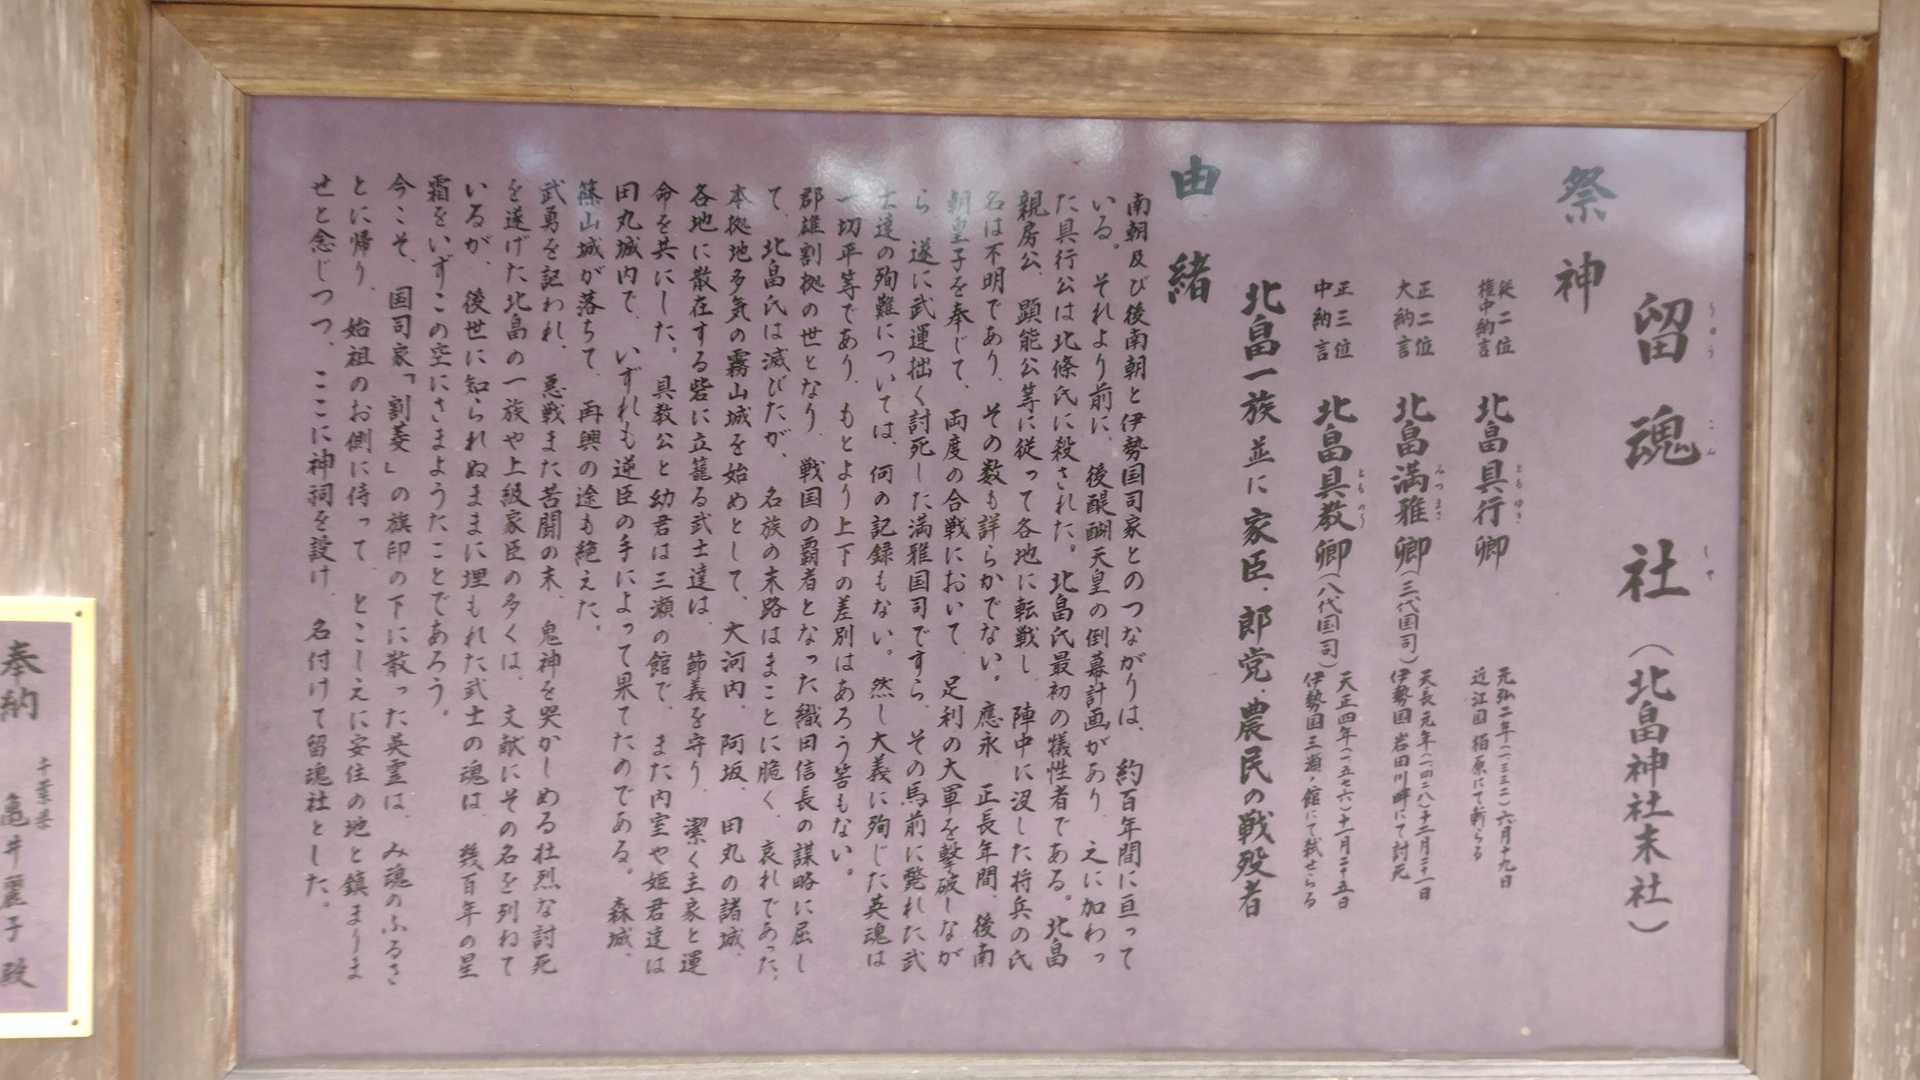 留魂社（北畠神社末社）
りゅう こん しゃ
祭神
従二位
権中納言
北畠具行卿
ともゆき
元弘二年（一三三二）六月十九日
近江国柏原にて斬らる
正二位
大納言
北畠満雅卿（三代国司）
みつまさ
天長元年（一四二八）十二月二十一日
伊勢国岩田川畔にて討死
正三位
中納言
北畠具教卿（八代国司）
とものり
天正四年（一五七六）十一月二十五日
伊勢国三瀬ノ館にて弑せらる
北畠一族並に家臣、郎党、農民の戦歿者
由緒
南朝及び後南朝と伊勢国司家とのつながりは、約百年間に亘って
いる。それより前に、後醍醐天皇の倒幕計画があり、之に加わっ
た具行公は北條氏に殺された。北畠氏最初の犠性者である。北畠
親房公、顕能公等に従って各地に転戦し、陣中に没した将兵の氏
名は不明であり、その数も詳らかでない。應永、正長年間、後南
朝皇子を奉じて、両度の合戦において、足利の大軍を撃破しなが
ら、遂に武運拙く討死した満雅国司ですら、その馬前に斃れた武
士達の殉難については、何の記録もない。然し大義に殉じた英魂は
一切平等であり、もとより上下の差別はあろう筈もない。
郡雄割拠の世となり、戦国の覇者となった織田信長の謀略に屈し
て、北畠氏は滅びたが、名族の末路はまことに脆く、哀れであった。
本拠地多気の霧山城を始めとして、大河内、阿坂、田丸の諸城、
各地に散在する砦に立籠る武士達は、節義を守り、潔く主家と運
命を共にした。具教公と幼君は三瀬の館で、また内室や姫君達は
田丸城内で、いずれも逆臣の手によって果てたのである。森城、
篠山城が落ちて、再興の途も絶えた。
武勇を記われ、悪戦また苦闘の末、鬼神を哭かしめる壮烈な討死
を遂げた北畠の一族や上級家臣の多くは、文献にその名を列ねて
いるが、後世に知られぬままに埋もれた武士の魂は、幾百年の星
霜をいずこの空にさまようたことであろう。
今こそ、国司家「割菱」の旗印の下に散った英霊は、み魂のふるさ
とに帰り、始祖のお側に侍って、とこしえに安住の地と鎮まりま
せと念じつつ、ここに神祠を設け、名付けて留魂社とした。
奉納
千葉県
亀井麗子殿